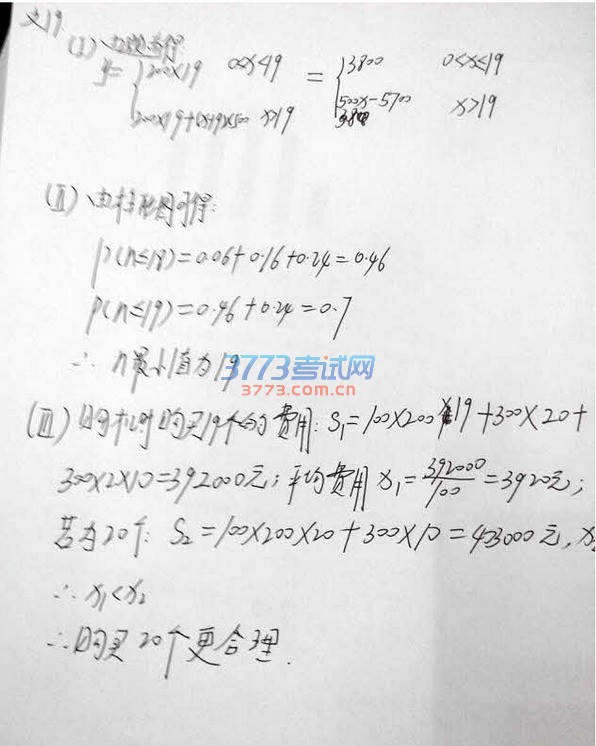 文19
(I) 由题意得:
y= { 200×19 0<x≤19 = { 3800 0<x≤19
200×19+(x-19)×500 x>19 500x-5700 x>19
(II) 由柱形图可得:
P(n≤18)=0.06+0.16+0.24=0.46
P(n≤19)=0.46+0.24=0.7
∴ n最小值为19
3773考试网
3773.com.cn
(III) 购机时购买19个的费用: S₁=100×200×19+300×20+
300×2×10=392000元; 平均费用 x₁=392000/100=3920元;
若为20个: S₂=100×200×20+300×10=403000元, x₂
∴ x₁<x₂
∴购买20个更合理.